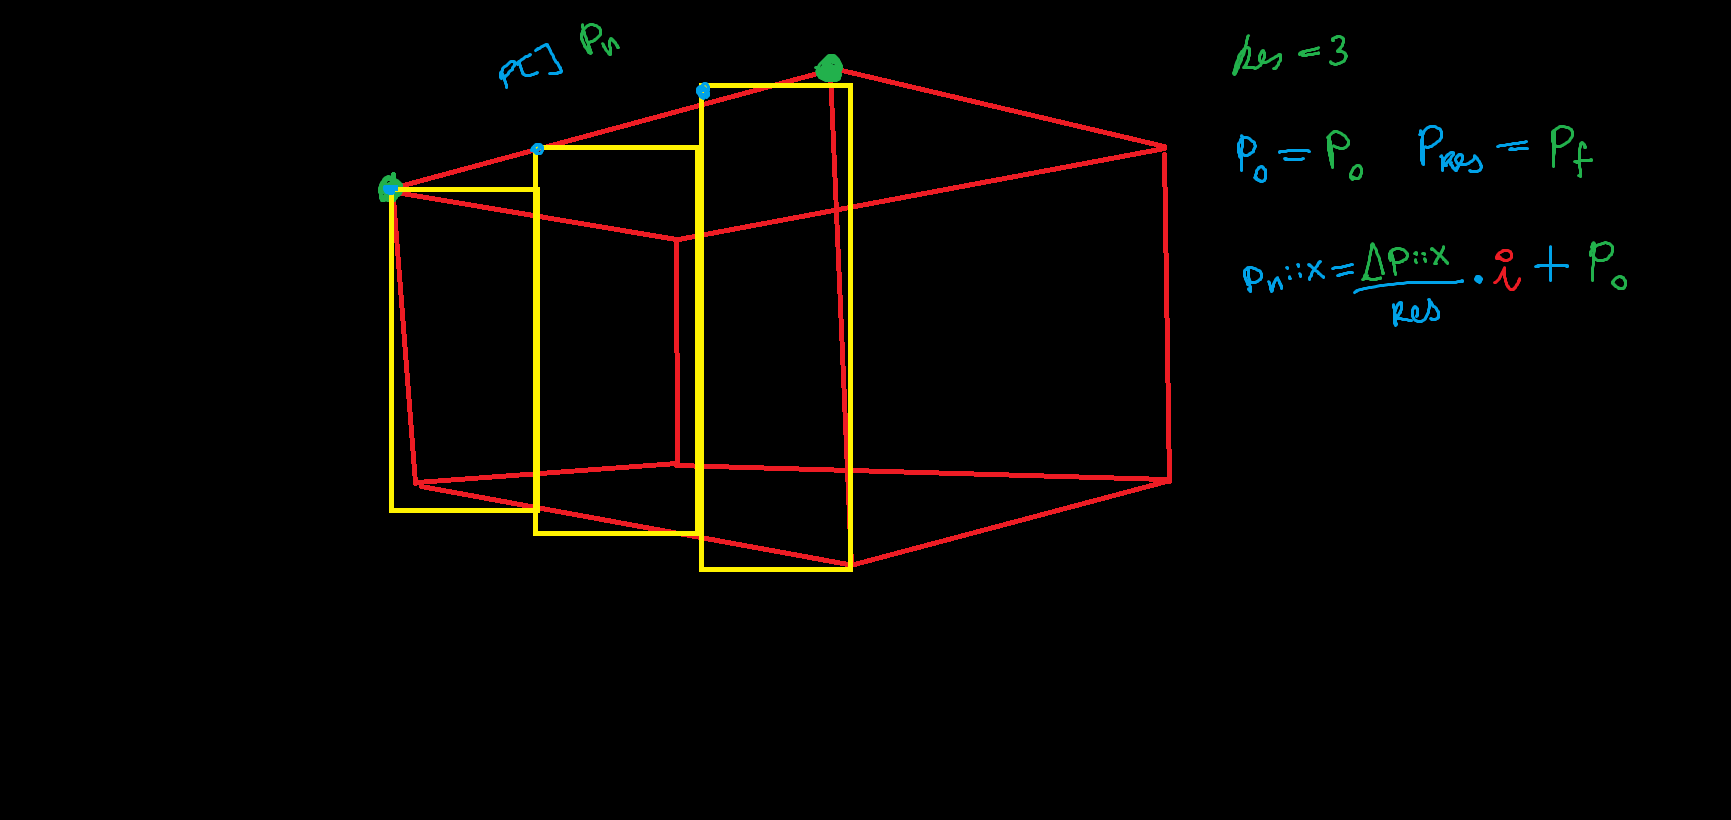 P[] Pn
Res = 3
P₀ = P₀ PRes = Pf
Pn::x = ΔP::x / Res · i + P₀